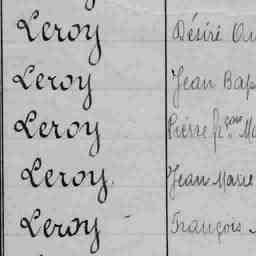 Leroy Désiré
Leroy Jean Bap
Leroy Pierre fçois
Leroy Jean Marie
Leroy François